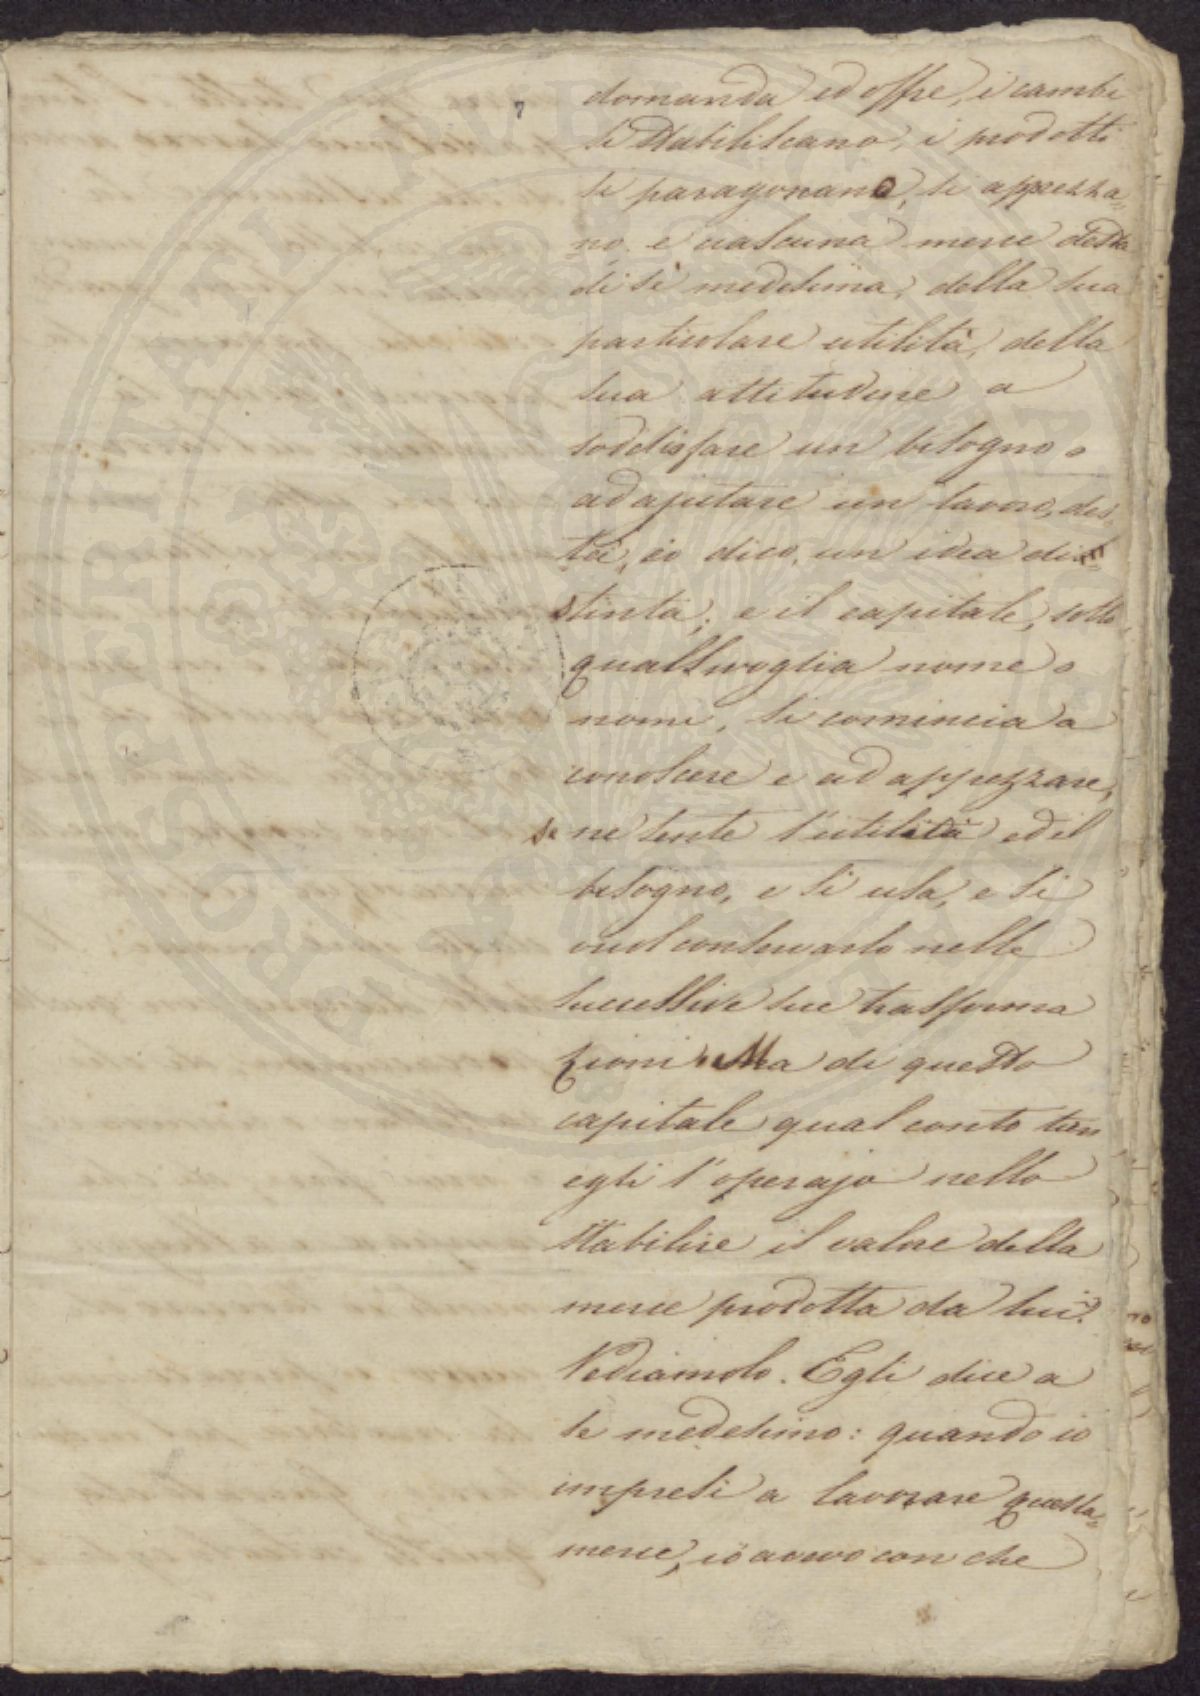 domanda ed offre, i cambi
si stabiliscano, i prodotti
si paragonano, si apprezza=
no. e ciascuna merce desta
di sè medesima, della sua
particolare utilità, della
sua attitudine a
soddisfare un bisogno o
ad ajutare un lavoro, des=
ta, io dico, un idea di=
stinta; e il capitale, sotto
qualsivoglia nome o
nomi, si comincia a
conoscere e ad apprezzare,
se ne sente l'utilità ed il
bisogno, e si usa, e si
vuol conservarlo nelle
successive sue trasforma
zioni. Ma di questo
capitale qual conto tien
egli l'operajo nello
stabilire il valore della
merce prodotta da lui?
Vediamolo. Egli dice a
se medesimo: quando io
impresi a lavorare questa=
merce, io aveva con che
PROSPERITATI PUBLICAE